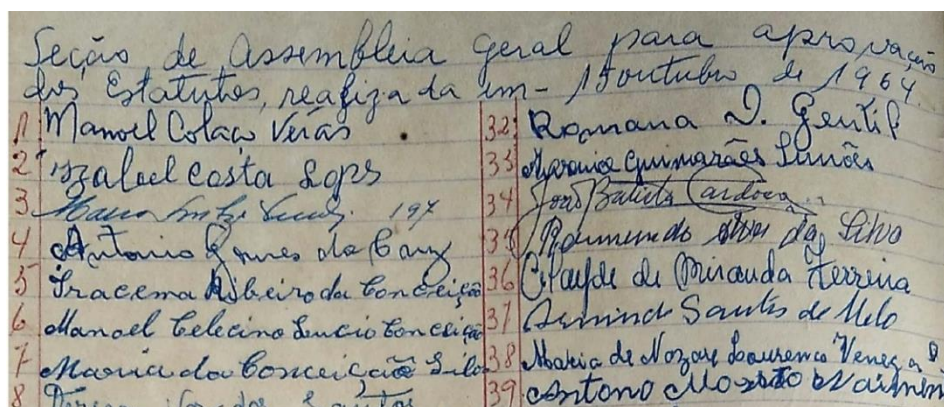 Seção de assembleia geral para aprovação
dos Estatutos, realizada em - 15 outubro de 1964.
1 Manoel Colaco Verás
2 Izabel Costa Lops
3 Maria
4 Antonio Gomes da Cruz
5 Iracema Ribeiro da Conceição
6 Manoel Celecino Lucio Conceição
7 Maria da Conceição Silva
8 Santos
32 Romana D. Gentil
33 Guimarães Simões
34 João Batista Cardoso
35 Raimundo da Silva
36 Clayde de Miranda Ferreira
37 Armindo Santos de Melo
38 Maria de Nozare Lourenco
39 Antono